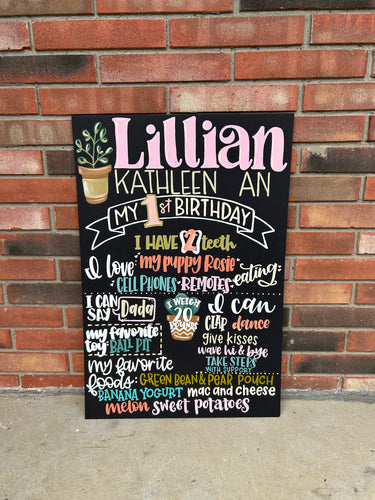 Lillian
KATHLEEN AN
MY 1st BIRTHDAY
I HAVE 2 teeth
I love my puppy Rosie
CELL PHONES - REMOTES - eating
I CAN SAY Dada
I WEIGH 20 POUNDS
I can
CLAP dance
give kisses
wave hi & bye
TAKE STEPS
WITH SUPPORT
my favorite
toy: BALL PIT
my favorite
foods: GREEN BEAN & PEAR POUCH
BANANA YOGURT mac and cheese
melon sweet potatoes